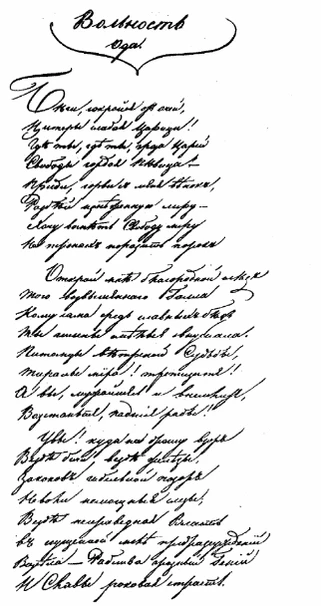 Вольность
Ода.
Беги, сокройся от очей,
Цитеры слабая Царица!
Где ты, где ты, гроза Царей
Свободы гордая Певица? —
Приди, сорви с меня венок,
Разбей изнеженную лиру —
Хочу воспеть Свободу миру
На тронах поразить порок
Открой мне благородной след
Того возвышенного Галла
Кому сама средь славных бед
Ты гимны смелые внушала.
Питомцы ветреной Судьбы,
Тираны мира! трепещите!
А вы, мужайтесь и внемлите,
Восстаньте, падшие рабы!!
Увы! куда ни брошу взор
Везде бичи везде железы,
Законов гибельный позор
Неволи немощные слезы;
Везде неправедная Власть
в сгущенной мгле предрассуждений
Воссела — Рабства грозный Гений
И Славы роковая страсть.